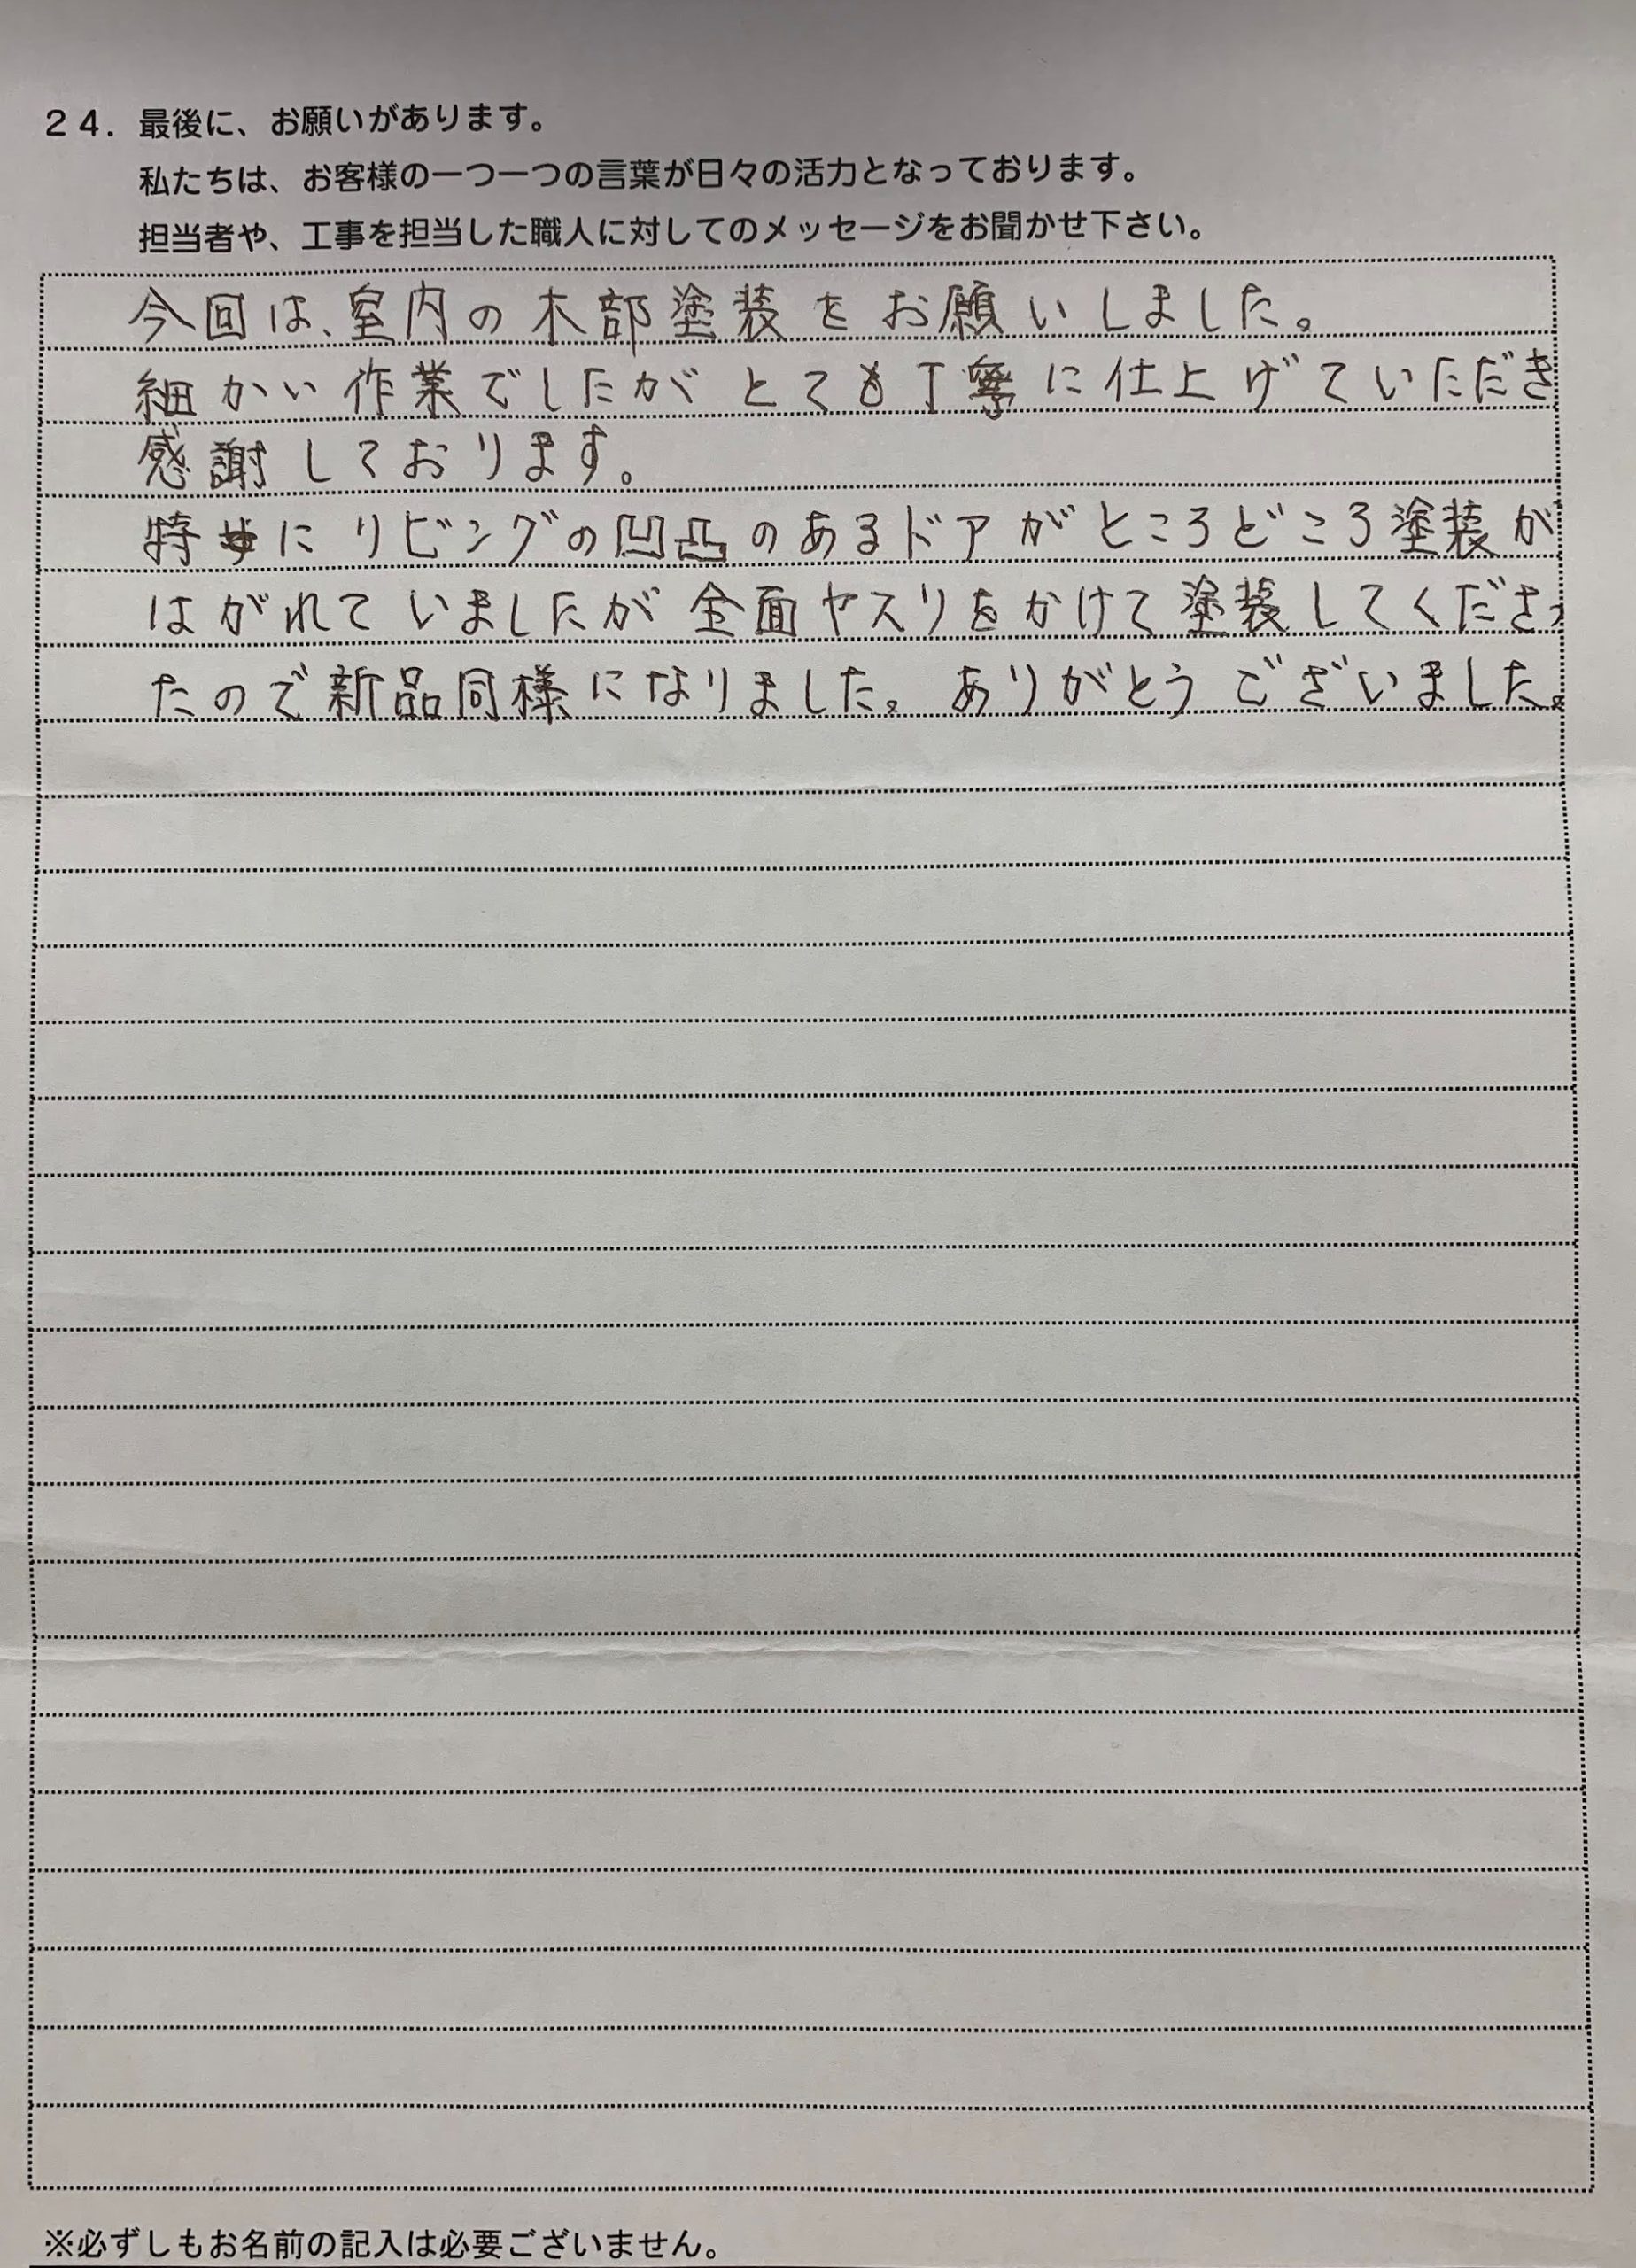 24. 最後に、お願いがあります。
私たちは、お客様の一つ一つの言葉が日々の活力となっております。
担当者や、工事を担当した職人に対してのメッセージをお聞かせ下さい。
今回は、室内の木部塗装をお願いしました。
細かい作業でしたがとても丁寧に仕上げていただき
感謝しております。
特に リビングの凹凸のあるドアがところどころ塗装が
はがれていましたが全面ヤスリをかけて塗装してくださっ
たので新品同様になりました。ありがとうございました。
※必ずしもお名前の記入は必要ございません。